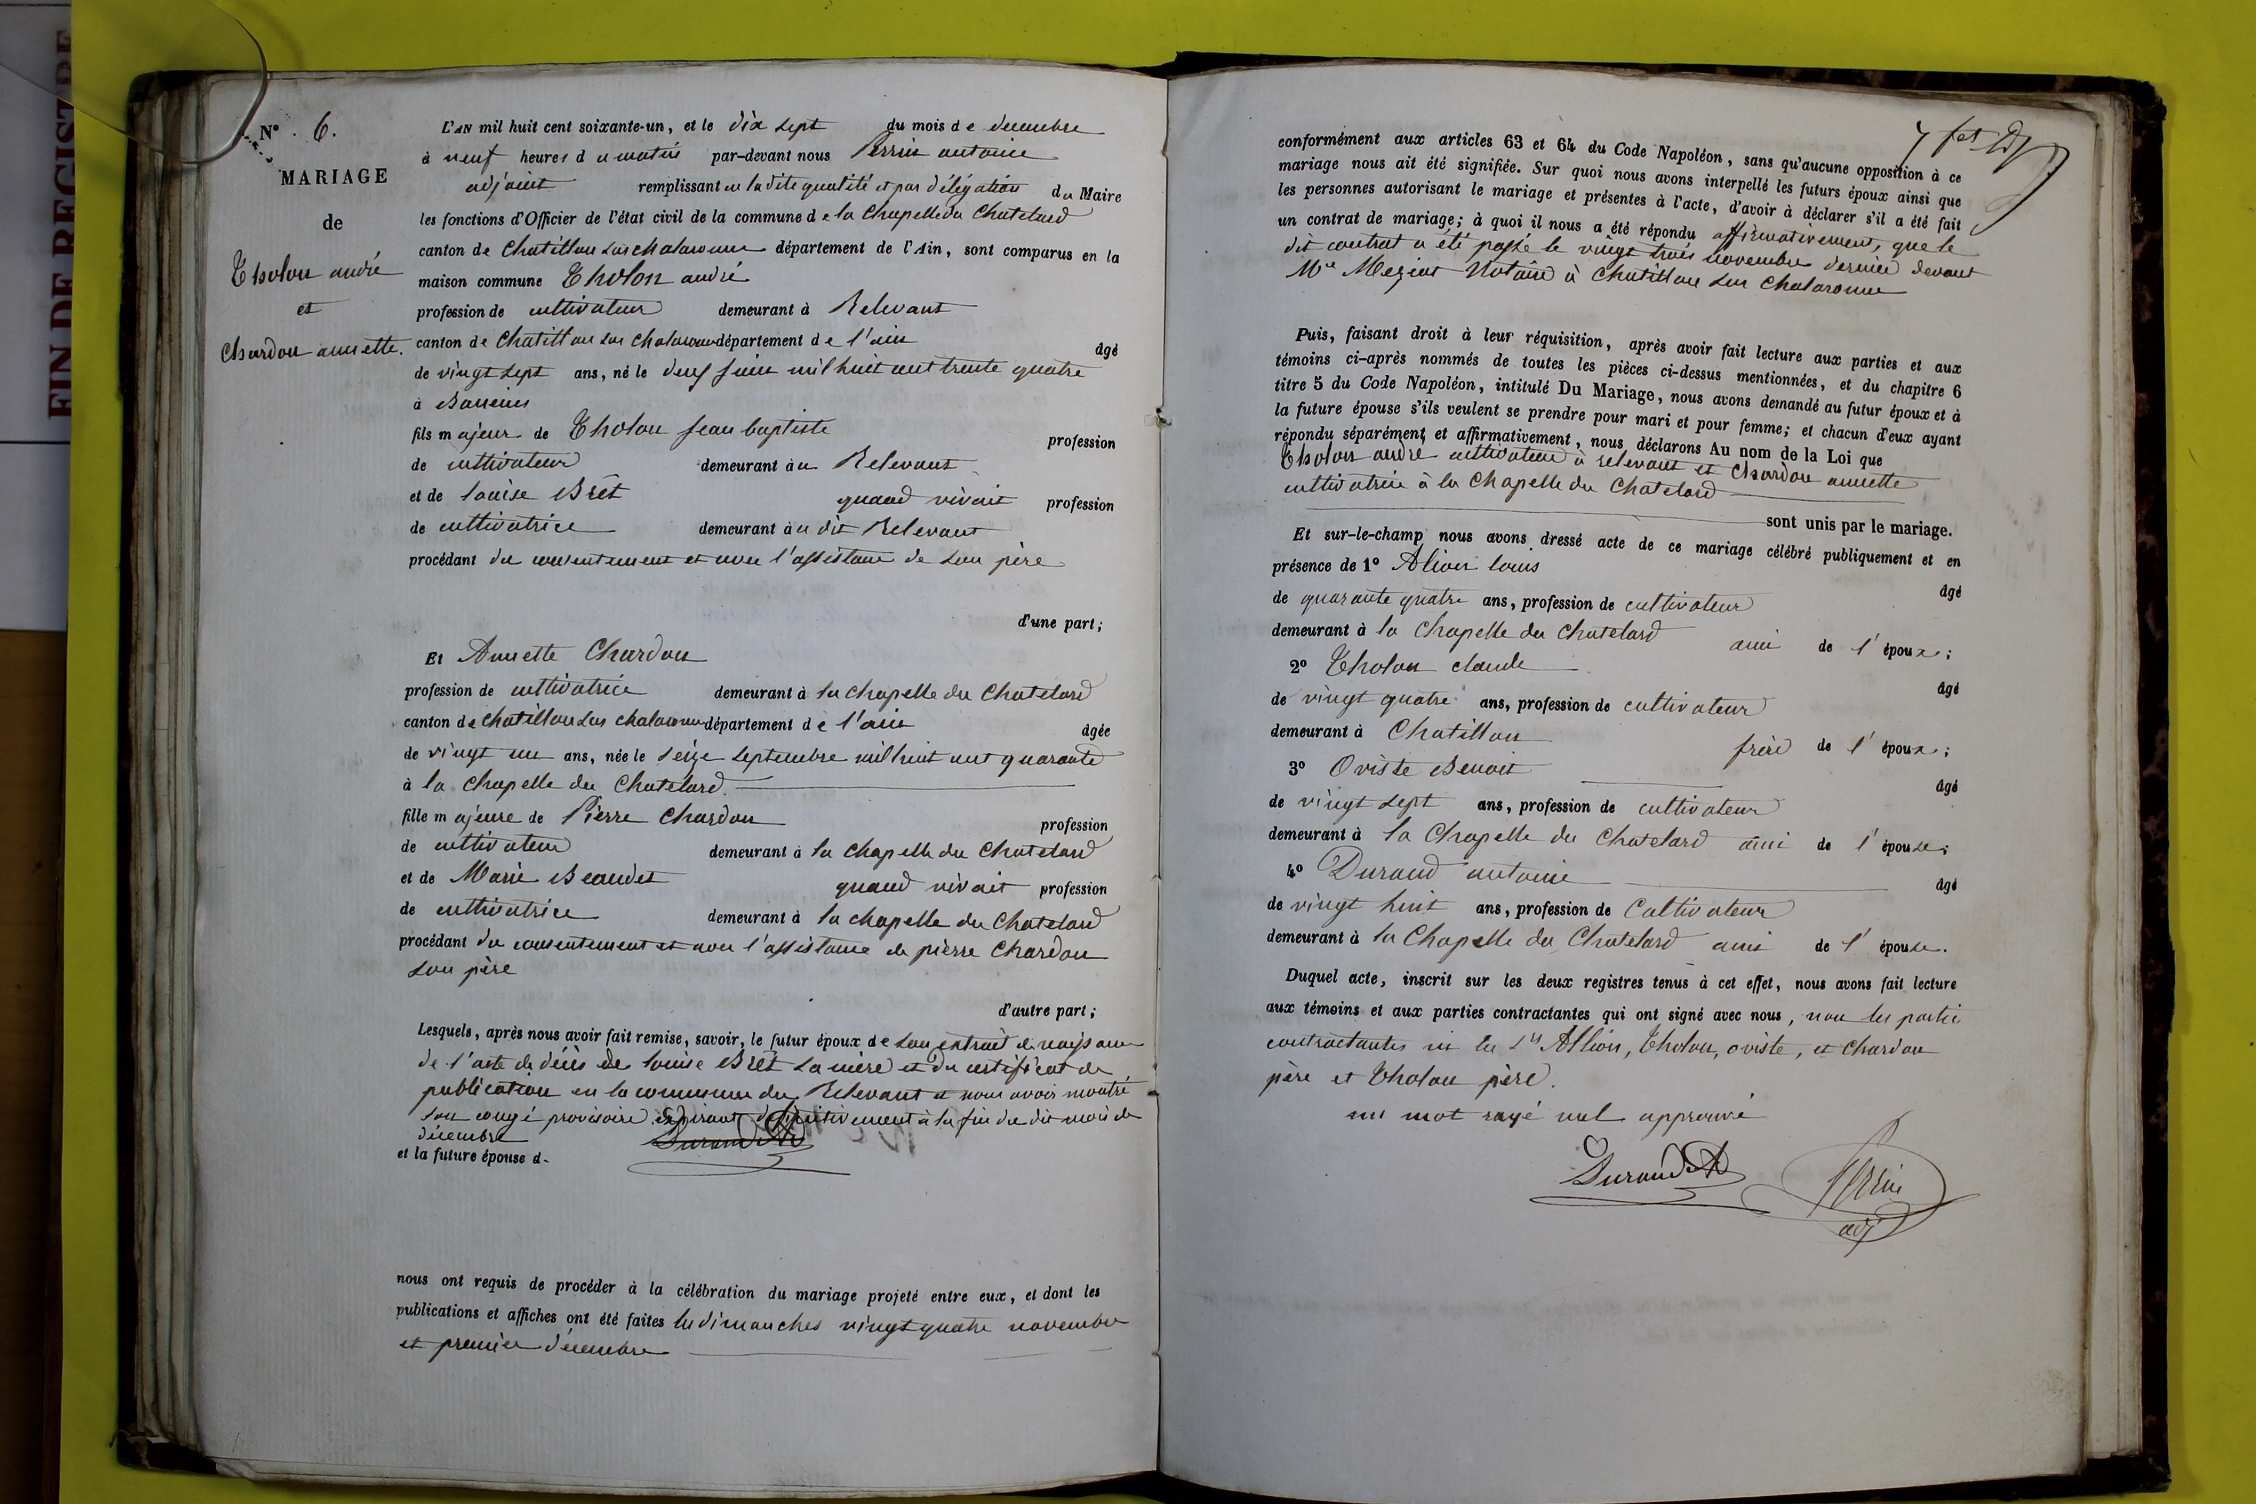 FIN DE REGISTRE
N° 6.
MARIAGE
de
Tholon andré
et
Chardon annette.
L'AN mil huit cent soixante-un, et le dix sept du mois de decembre
à neuf heures du matin par-devant nous Perrin antoine
adjoint remplissant en la dite qualité et par délégation du Maire
les fonctions d'Officier de l'état civil de la commune de la Chapelle du Chatelard
canton de Chatillon sur chalaronne département de l'Ain, sont comparus en la
maison commune Tholon andré
profession de cultivateur demeurant à Relevant
canton de Chatillon sur chalaronne département de l'ain âgé
de vingt sept ans, né le deux juin mil huit cent trente quatre
à
fils majeur de Tholon jean baptiste profession
de cultivateur demeurant au Relevant
et de louise Brêt quand vivait profession
de cultivatrice demeurant au dit Relevant
procédant du consentement et avec l'assistance de son père
d'une part;
Et Annette Chardon
profession de cultivatrice demeurant à la chapelle du Chatelard
canton de chatillon sur chalaronne département de l'ain âgée
de vingt un ans, née le seize septembre mil huit cent quarante
à la chapelle du Chatelard.
fille majeure de Pierre Chardon profession
de cultivateur demeurant à la chapelle du Chatelard
et de Marie Beaudet quand vivait profession
de cultivatrice demeurant à la chapelle du Chatelard
procédant du consentement et avec l'assistance de pierre Chardon
son père
d'autre part;
Lesquels, après nous avoir fait remise, savoir, le futur époux de son extrait de naissance
de l'acte de décès de louise Brêt sa mère et du certificat de
publication en la commune de Relevant et nous avoir montré
son congé provisoire expirant définitivement à la fin du dit mois de
décembre
et la future épouse d
Durand A
nous ont requis de procéder à la célébration du mariage projeté entre eux, et dont les
publications et affiches ont été faites les dimanches vingt quatre novembre
et premier décembre
conformément aux articles 63 et 64 du Code Napoléon, sans qu'aucune opposition à ce
mariage nous ait été signifiée. Sur quoi nous avons interpellé les futurs époux ainsi que
les personnes autorisant le mariage et présentes à l'acte, d'avoir à déclarer s'il a été fait
un contrat de mariage; à quoi il nous a été répondu affirmativement, que le
dit contrat a été passé le vingt trois novembre dernier devant
Me Meziat Notaire à Chatillon sur Chalaronne
Puis, faisant droit à leur réquisition, après avoir fait lecture aux parties et aux
témoins ci-après nommés de toutes les pièces ci-dessus mentionnées, et du chapitre 6
titre 5 du Code Napoléon, intitulé Du Mariage, nous avons demandé au futur époux et à
la future épouse s'ils veulent se prendre pour mari et pour femme; et chacun d'eux ayant
répondu séparément et affirmativement, nous déclarons Au nom de la Loi que
Tholon andré cultivateur à relevant et Chardon annette
cultivatrice à la Chapelle du Chatelard
sont unis par le mariage.
Et sur-le-champ nous avons dressé acte de ce mariage célébré publiquement et en
présence de 1° Alion louis âgé
de quarante quatre ans, profession de cultivateur
demeurant à la Chapelle du Chatelard ami de l'époux;
2° Tholon claude âgé
de vingt quatre ans, profession de cultivateur
demeurant à Chatillon frère de l'époux;
3° Oviste Benoit âgé
de vingt sept ans, profession de cultivateur
demeurant à la Chapelle du Chatelard ami de l'épouse;
4° Durand antoine âgé
de vingt huit ans, profession de Cultivateur
demeurant à la Chapelle du Chatelard ami de l'épouse.
Duquel acte, inscrit sur les deux registres tenus à cet effet, nous avons fait lecture
aux témoins et aux parties contractantes qui ont signé avec nous, non les partie
contractantes ni les Srs Allion, Tholon, oviste, et Chardon
père et Tholon père.
un mot rayé nul approuvé
Durand A
Perrin
adj